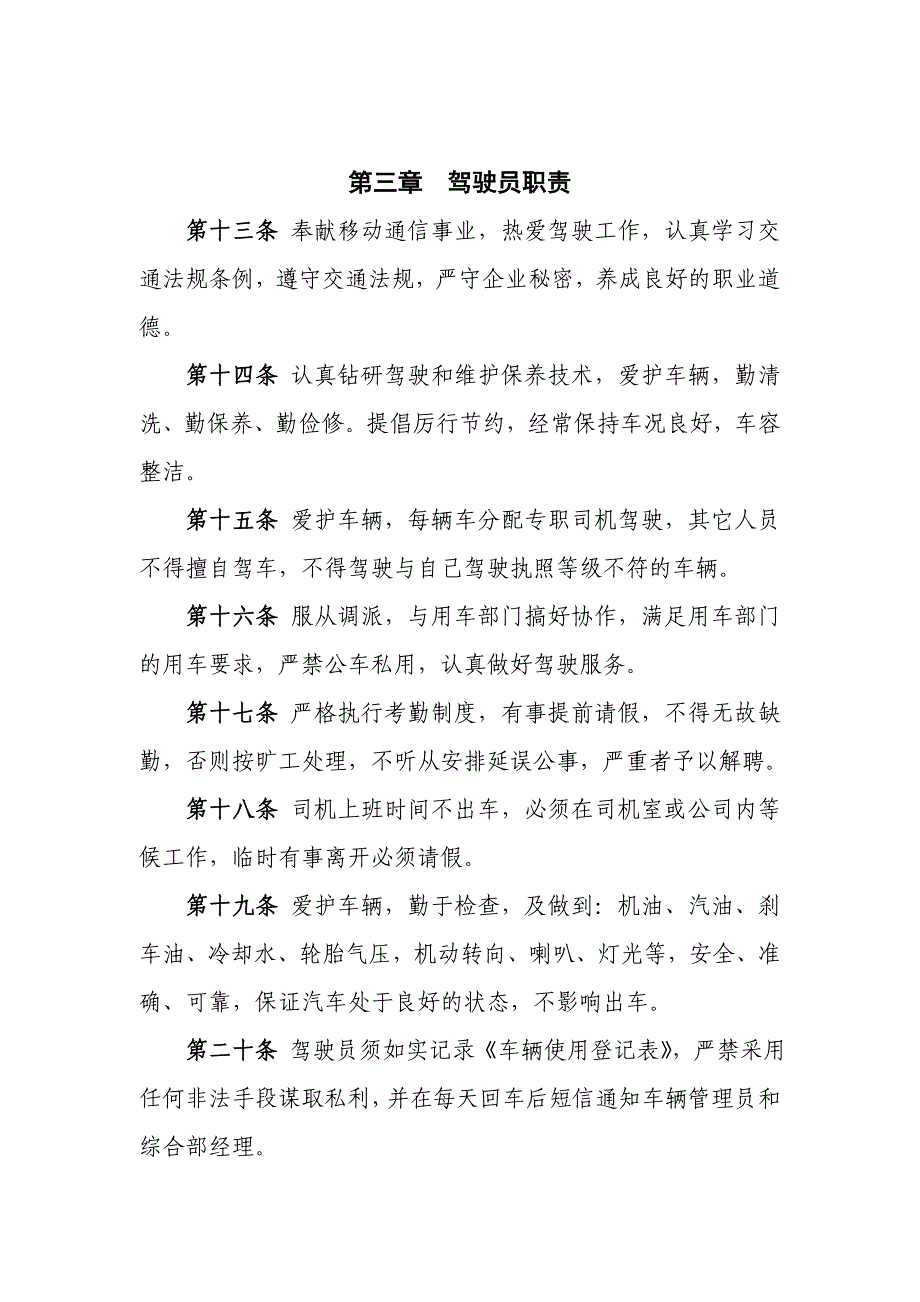 第三章　驾驶员职责
第十三条 奉献移动通信事业，热爱驾驶工作，认真学习交
通法规条例，遵守交通法规，严守企业秘密，养成良好的职业道
德。
第十四条 认真钻研驾驶和维护保养技术，爱护车辆，勤清
洗、勤保养、勤俭修。提倡厉行节约，经常保持车况良好，车容
整洁。
第十五条 爱护车辆，每辆车分配专职司机驾驶，其它人员
不得擅自驾车，不得驾驶与自己驾驶执照等级不符的车辆。
第十六条 服从调派，与用车部门搞好协作，满足用车部门
的用车要求，严禁公车私用，认真做好驾驶服务。
第十七条 严格执行考勤制度，有事提前请假，不得无故缺
勤，否则按旷工处理，不听从安排延误公事，严重者予以解聘。
第十八条 司机上班时间不出车，必须在司机室或公司内等
候工作，临时有事离开必须请假。
第十九条 爱护车辆，勤于检查，及做到：机油、汽油、刹
车油、冷却水、轮胎气压，机动转向、喇叭、灯光等，安全、准
确、可靠，保证汽车处于良好的状态，不影响出车。
第二十条 驾驶员须如实记录《车辆使用登记表》，严禁采用
任何非法手段谋取私利，并在每天回车后短信通知车辆管理员和
综合部经理。